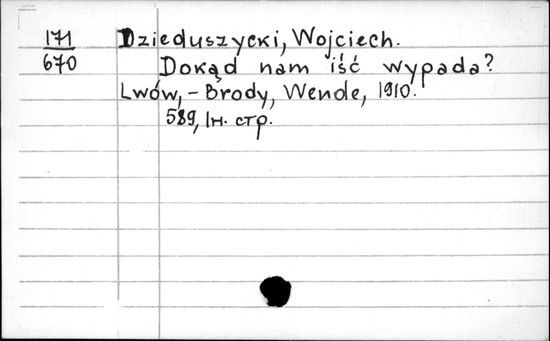 171
670
Dzieduszycki, Wojciech.
Dokąd nam iść wypada?
Lwów, - Brody, Wende, 1910.
589, Iн. стр.